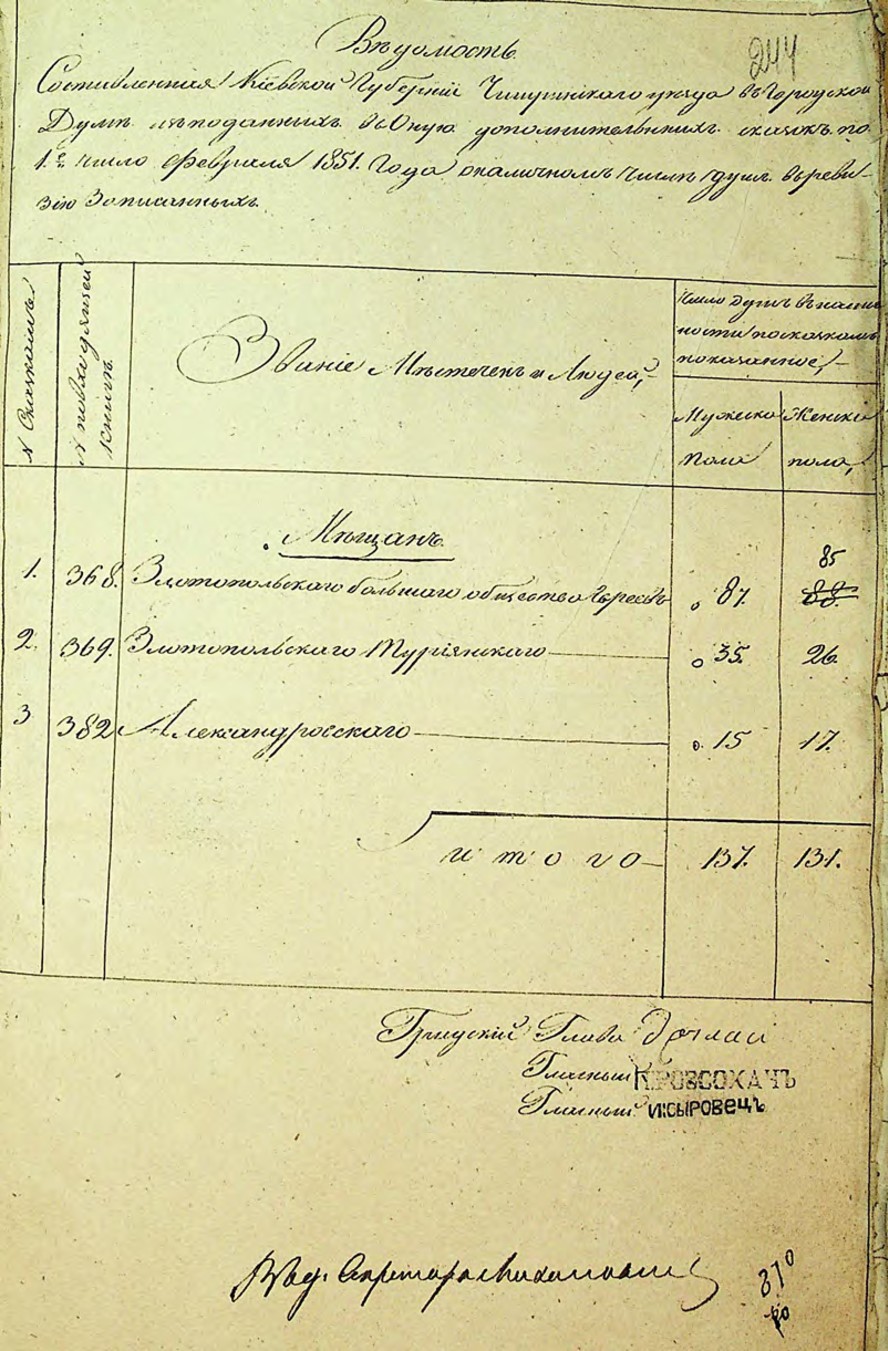 Вѣдомость
244
Составленная Кіевской Губерніи Чигиринскаго уезда въ Городской
Думѣ изъ поданныхъ въ Оную дополнительныхъ сказокъ по
1е число Февраля 1851. Года о наличномъ числѣ душъ въ реви-
зію Записанныхъ.
№ Сказкамъ
№ по входящей книгѣ
Званіе Мѣстечекъ и Людей,
Число душъ въ налич-
ности по сказкамъ
показанное,
Мужеска пола
Женска пола,
Мѣщанъ.
85
1. 368. Златопольскаго большаго общества Евреевъ 87. 88.
2. 369. Златопольскаго Туріянскаго 35. 26.
3 382 Александровскаго 15 17.
итого 137. 131.
Градскій Глава
Гласный
Гласный И:СЫРОВЕЦЪ
Секретарь
370